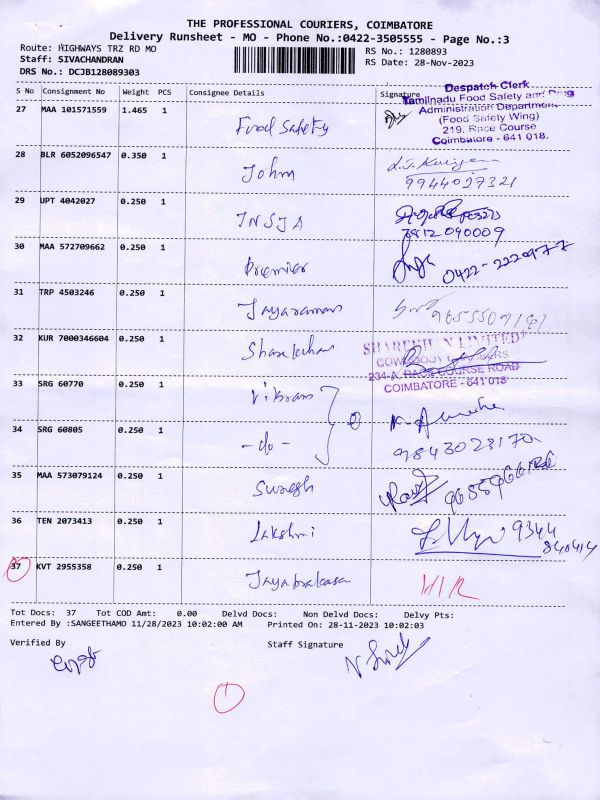 THE PROFESSIONAL COURIERS, COIMBATORE
Delivery Runsheet - MO - Phone No.:0422-3505555 - Page No.:3
Route: HIGHWAYS TRZ RD MO
RS No.: 1280893
Staff: SIVACHANDRAN
RS Date: 28-Nov-2023
DRS No.: DCJB128089303
S No Consignment No Weight PCS Consignee Details Signature
Despatch Clerk
Tamilnadu Food Safety and Drug
Administration Department
(Food Safety Wing)
219, Race Course
Coimbatore - 641 018.
27 MAA 101571559 1.465 1 Food Safety
28 BLR 6052096547 0.350 1 John
9944027321
29 UPT 4042027 0.250 1 INSJA
7812090009
30 MAA 572709662 0.250 1 Premier 0422-2220977
31 TRP 4503246 0.250 1 Jayaraman
32 KUR 7000346604 0.250 1
LIMITED
234-A, RACE COURSE ROAD
COIMBATORE - 641 018
33 SRG 60770 0.250 1 Vikram
34 SRG 60805 0.250 1 -do-
9843023170
35 MAA 573079124 0.250 1 Suresh
36 TEN 2073413 0.250 1 Lakshmi 9344
840414
37 KVT 2955358 0.250 1 Jayaprakasan
Tot Docs: 37 Tot COD Amt: 0.00 Delvd Docs: Non Delvd Docs: Delvy Pts:
Entered By :SANGEETHAMO 11/28/2023 10:02:00 AM Printed On: 28-11-2023 10:02:03
Verified By Staff Signature
1